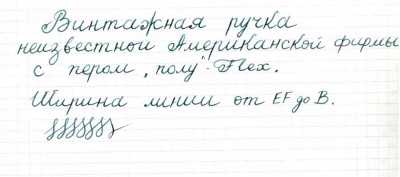 Винтажная ручка
неизвестной Американской фирмы
с пером „полу"-Flex.
Ширина линии от EF до B.